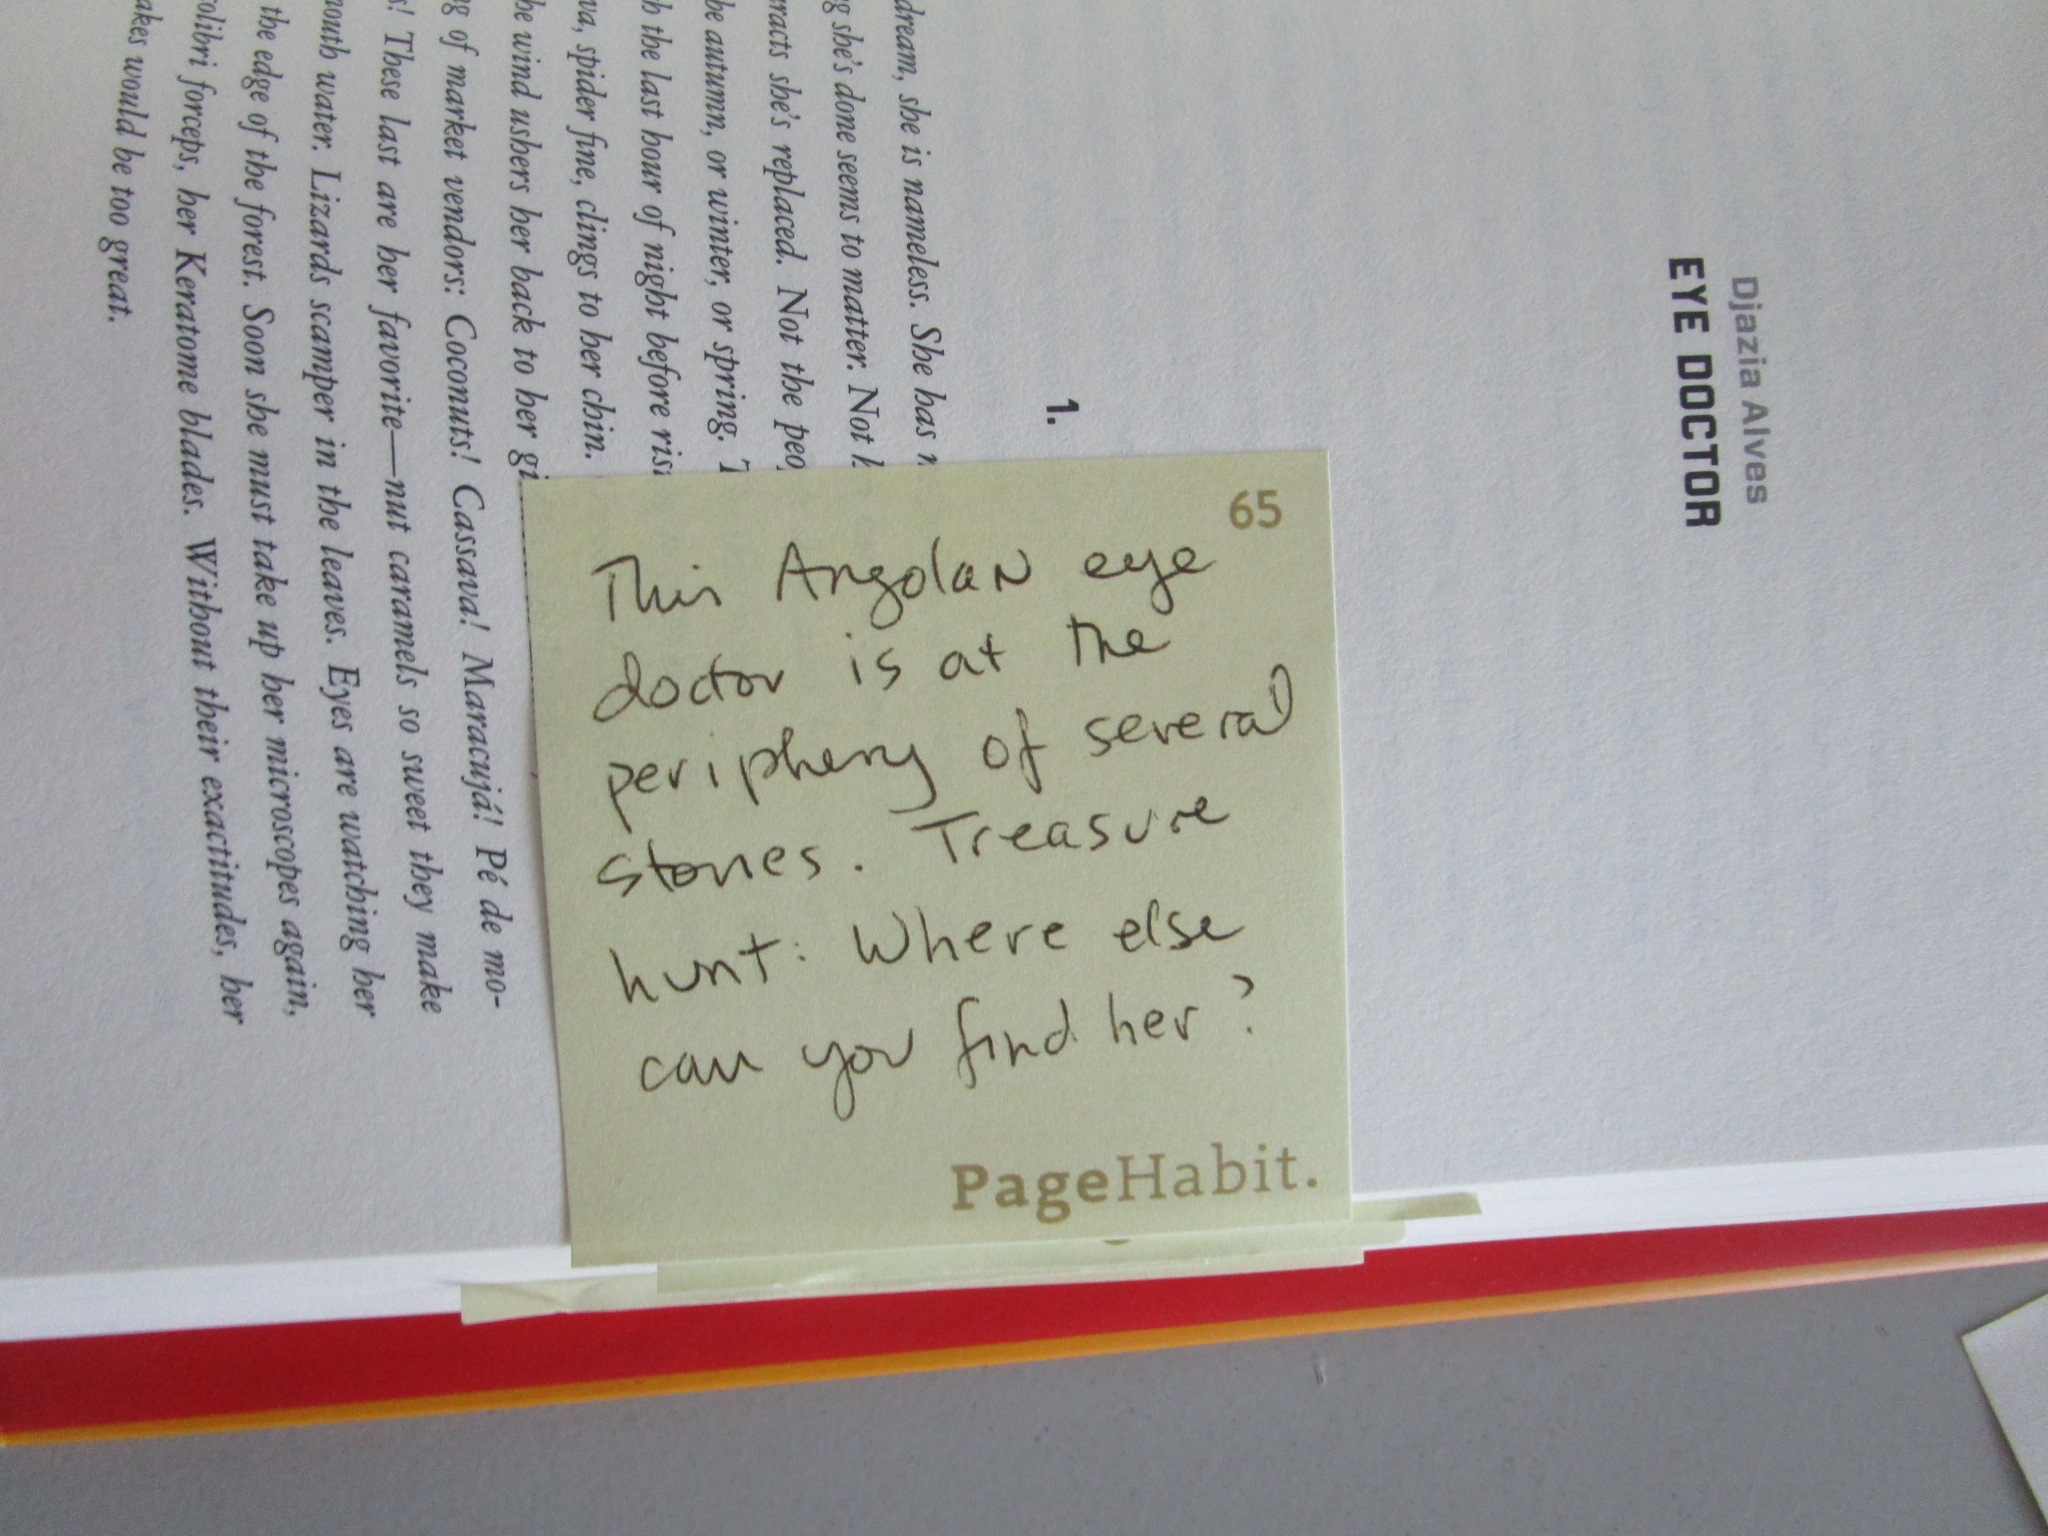 Djazia Alves
EYE DOCTOR
1.
dream, she is nameless. She has
she's done seems to matter. Not
she's replaced. Not the
autumn, or winter, or spring.
the last hour of night before
spider fine, clings to her chin.
wind ushers her back to her
of market vendors: Coconuts! Cassava! Maracujá! Pé de mo-
These last are her favorite—nut caramels so sweet they make
mouth water. Lizards scamper in the leaves. Eyes are watching her
the edge of the forest. Soon she must take up her microscopes again,
olibri forceps, her Keratome blades. Without their exactitudes, her
akes would be too great.
65
This Angolan eye
doctor is at the
periphery of several
stories. Treasure
hunt: Where else
can you find her?
PageHabit.